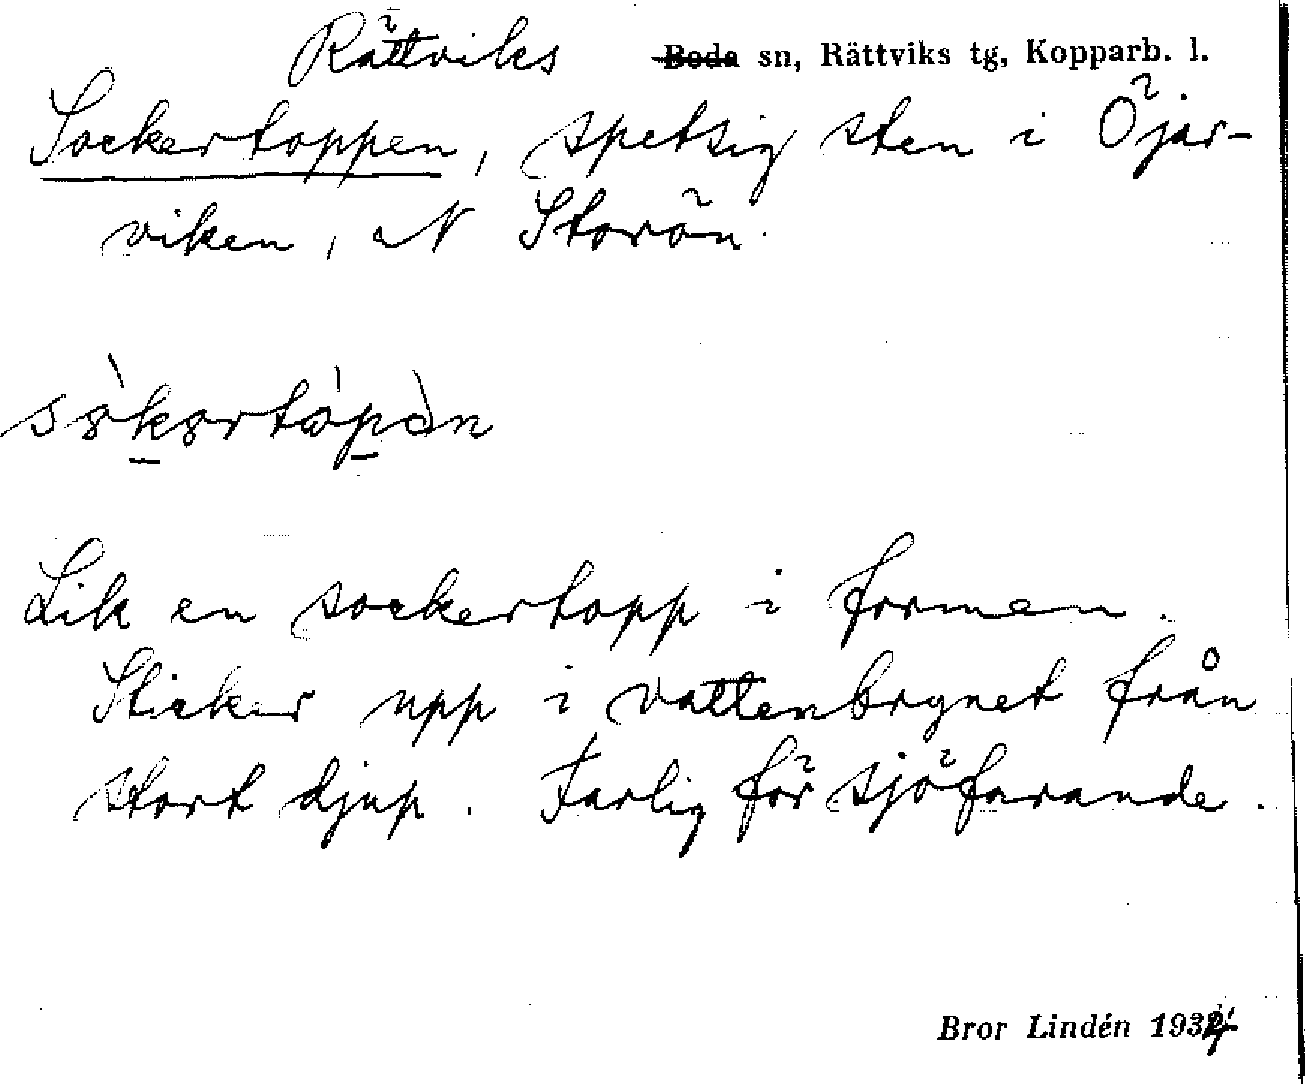 Rättviks Boda sn, Rättviks tg, Kopparb. l.
Sockertoppen, spetsig sten i Öjar-
viken, N Storön.
Lik en sockertopp i formen.
Sticker upp i vattenbrynet från
stort djup. Farlig för sjöfarande.
Bror Lindén 1934